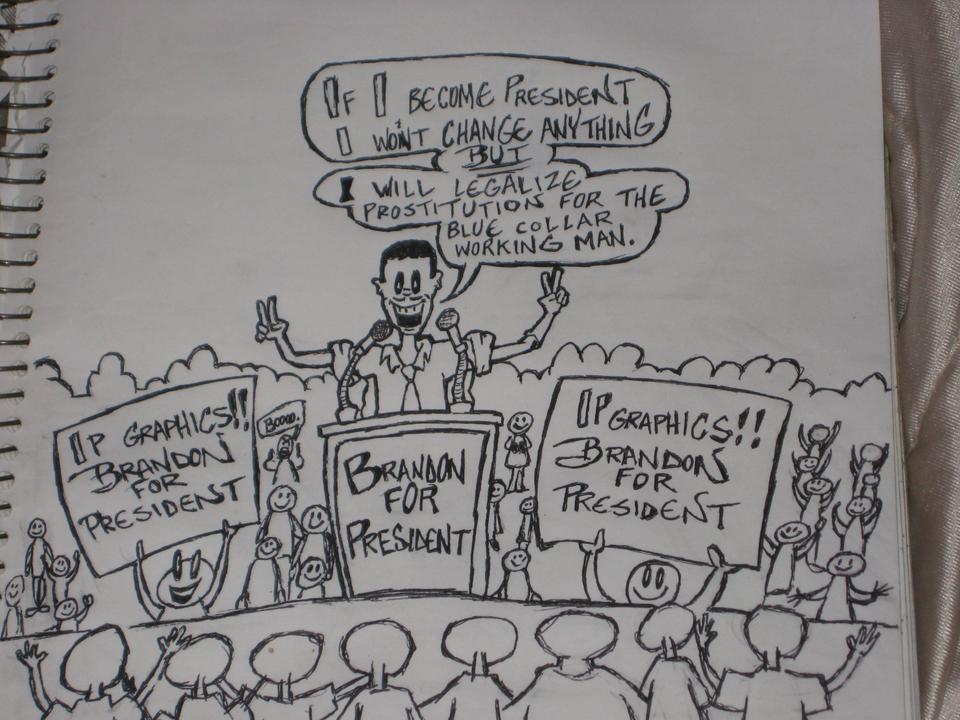 IF I BECOME PRESIDENT
I WON'T CHANGE ANYTHING
BUT
I WILL LEGALIZE
PROSTITUTION FOR THE
BLUE COLLAR
WORKING MAN.
IP GRAPHICS!!
BRANDON
FOR
PRESIDENT
BOOOO.
BRANDON
FOR
PRESIDENT
IP GRAPHICS!!
BRANDON
FOR
PRESIDENT